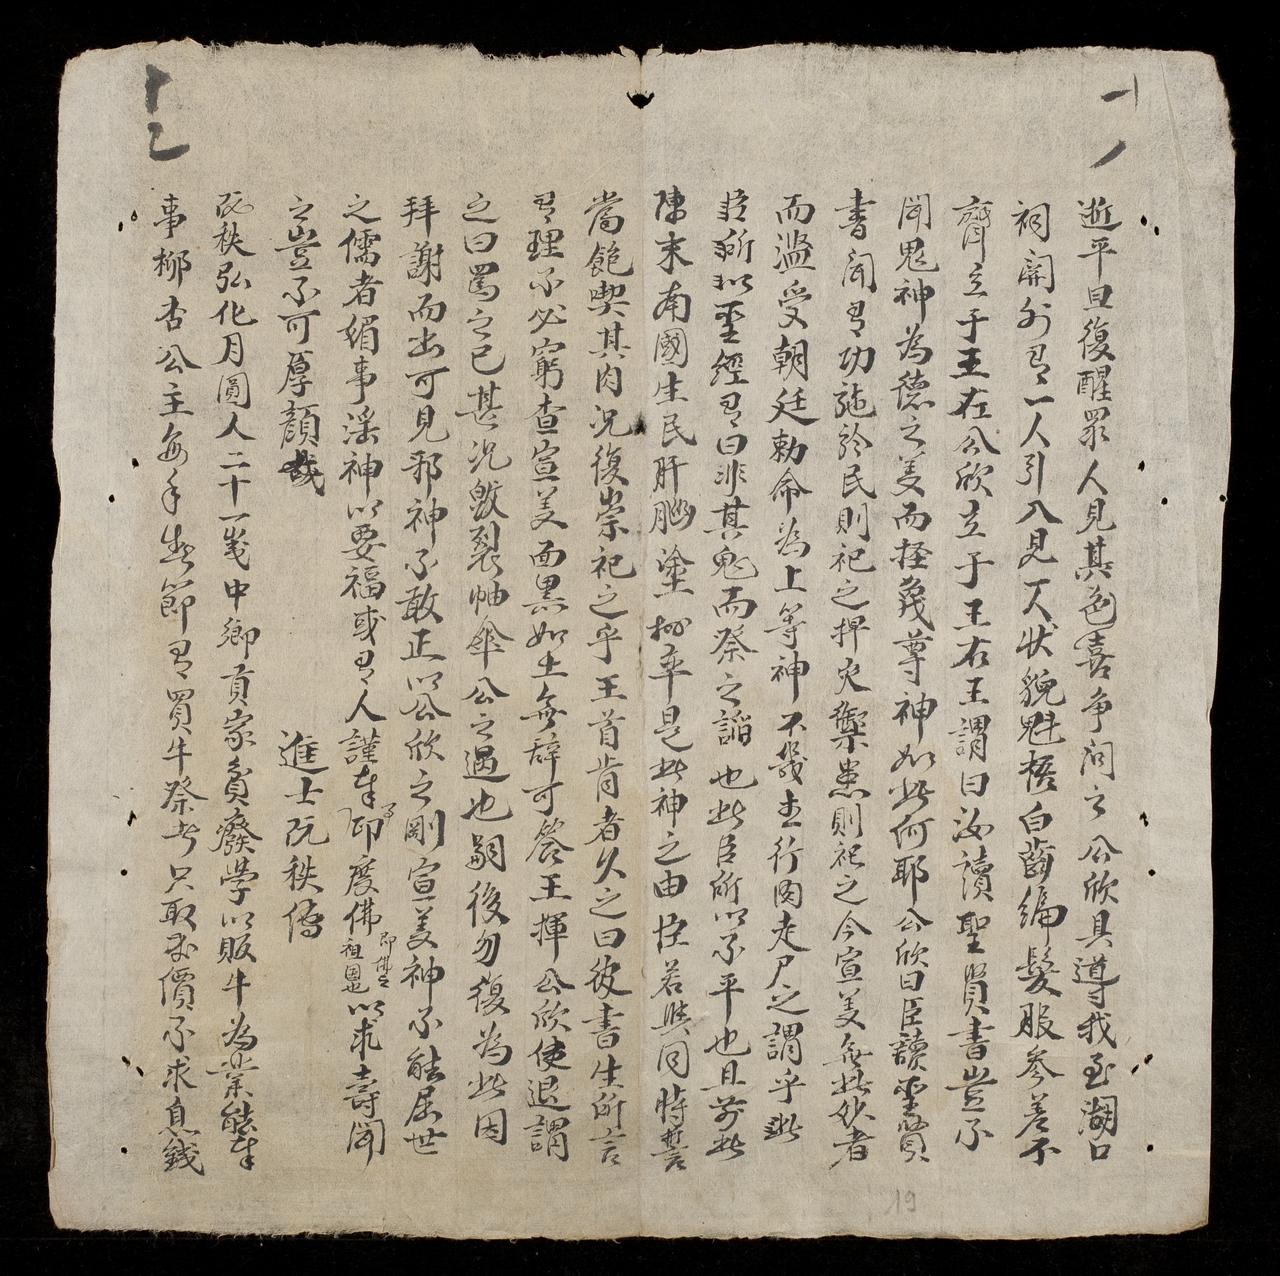 逝平旦復醒眾人見其色喜争问之公欣具導我至湖口
祠闹外有二人引入見一人状貌魁梧白齒編髮服参差不
齊立于王左公欣立于王右王謂曰汝讀聖賢書豈不
闻鬼神為德之美而輕蔑尊神如此何耶公欣曰臣讀聖賢
書闻有功施於民則祀之捍灾禦患則祀之今宣美無此妙者
而濫受朝廷勅命為上等神不幾走行肉走尸之謂乎此
臣所以聖經有曰非其鬼而祭之諂也此臣所以不平也且前此
陳末南國生民肝腦塗地卒是此神之由臣若與同時誓
當飽喫其肉况復崇祀之乎王首肯者久之曰彼書生所言
有理不必窮查宣美面黑如土無辞可答王揮公欣使退謂
之曰罵之已甚况毀裂帕傘公之過也嗣後勿復為此因
拜謝而出可見邪神不敢正以公欣之剛宣美神不能屈世
之儒者媚事淫神以要福或有人謹奉印度佛以求壽闻
即佛之祖國也
之豈不可厚顏哉
進士阮秩傳
阮秩弘化月圓人二十一歲中鄉貢家貧癈學以販牛為業能奉
事柳杏公主每年生節有買牛祭者只取本價不求息錢
十乙
19